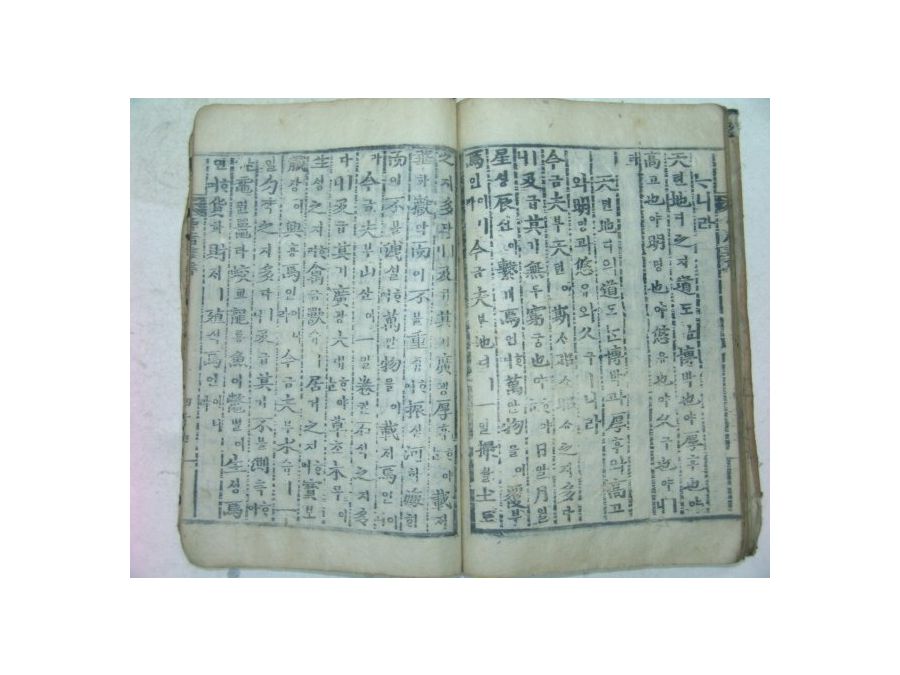 ᄂᆞ니라
天텬地디之지道도ᄂᆞᆫ博박也야厚후也야
高고也야明명也야悠유也야久구也야니
라
天텬地디의道도ᄂᆞᆫ博박과厚후와高고
와明명과悠유와久구ㅣ니라
今금夫부天텬이斯ᄉᆞ昭쇼昭쇼之지多다
ㅣ니及급其기無무窮궁也야ᄒᆞ야ᄂᆞᆫ日일月월
星셩辰신이繫계焉언ᄒᆞ며萬만物물이覆부
焉언이니라今금夫부地디ㅣ一일撮촬土토
之지多다ㅣ니及급其기廣광厚후ᄒᆞ야ᄂᆞᆫ載ᄌᆡ
華화嶽악而이不블重듕ᄒᆞ며振진河하海ᄒᆡ
而이不블洩셜ᄒᆞ며萬만物물이載ᄌᆡ焉언이니
라今금夫부山산이一일卷권石셕之지多
다ㅣ니及급其기廣광大대ᄒᆞ야ᄂᆞᆫ草초木목이
生ᄉᆡᆼ之지ᄒᆞ며禽금獸슈ㅣ居거之지ᄒᆞ며寶보
藏장이興흥焉언이니라今금夫부水슈ㅣ一
일勺쟉之지多다ㅣ니及급其기不블測측ᄒᆞ야
ᄂᆞᆫ黿원鼉타蛟교龍룡魚어鼈별이生ᄉᆡᆼ焉
언ᄒᆞ며貨화財ᄌᆡㅣ殖식焉언이니라